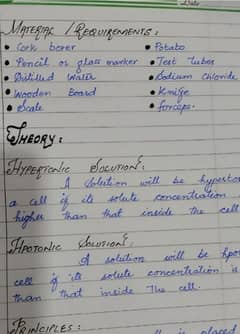 MATERIAL / REQUIREMENTS:
• Cork borer • Potato
• Pencil or glass marker • Test Tubes
• Distilled Water • Sodium Chloride
• Wooden Board • Knife
• Scale • Forceps.
THEORY:
HYPERTONIC SOLUTION:
A Solution will be hyperto
a cell if its solute concentration
higher than that inside the cell
HPOTONIC SOLUTION:
A solution will be hpo
cell if its solute concentration is
than that inside The cell.
PRINCIPLES:
is placed